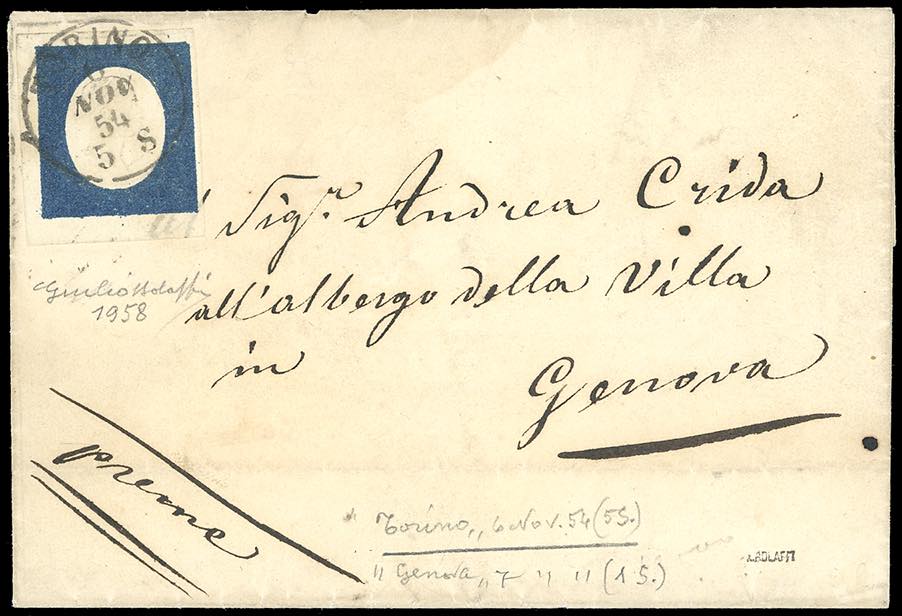 TORINO
6
NOV
54
5 S
Al Sig.r Andrea Crida
all'albergo della Villa
in
Genova
Giulio Bolaffi
1958
preme
Torino,, 6 Nov. 54 (5S.)
" Genova ,, 7 " " (1 S.)
A.BOLAFFI